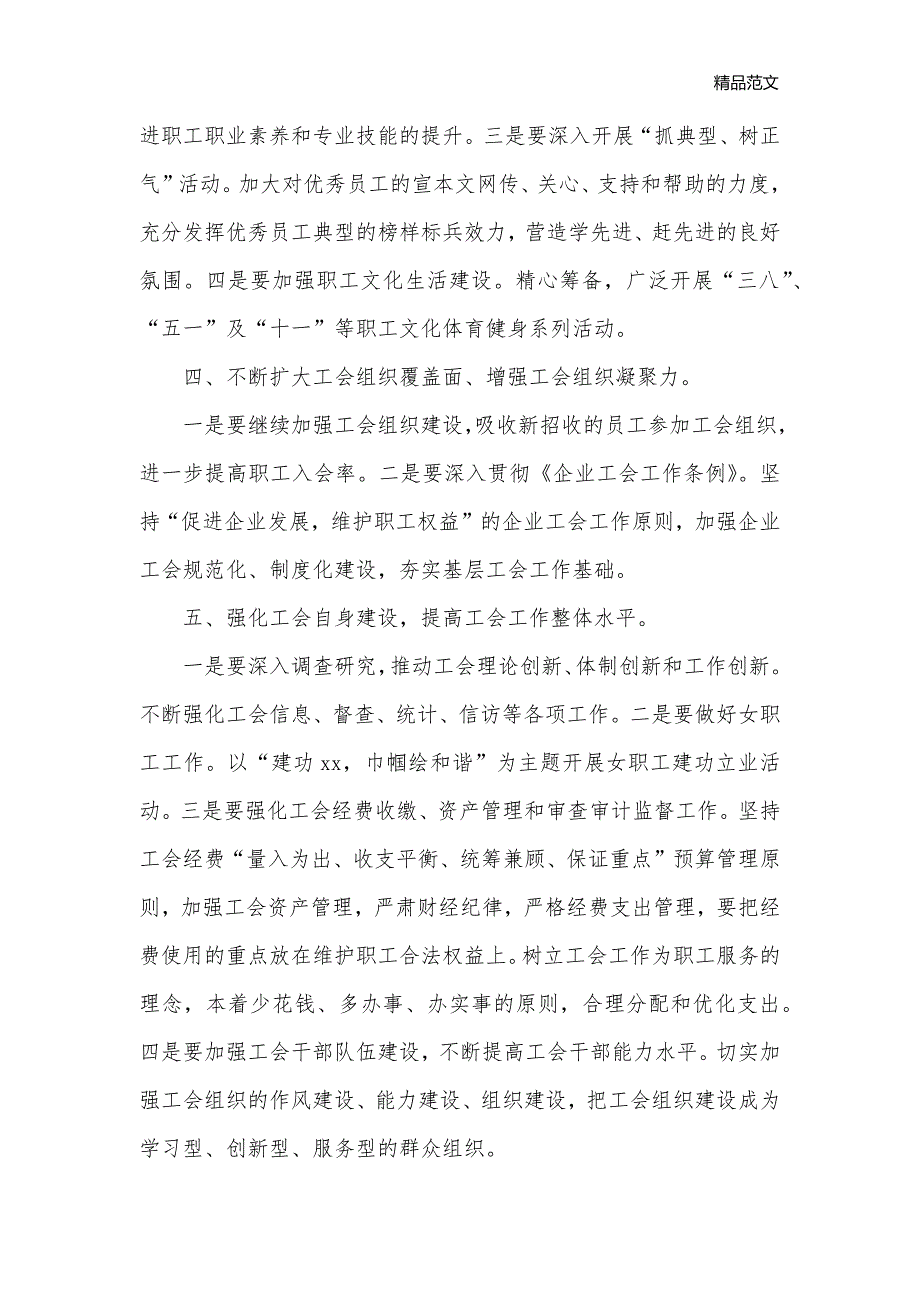 精品范文
进职工职业素养和专业技能的提升。三是要深入开展“抓典型、树正
气”活动。加大对优秀员工的宣本文网传、关心、支持和帮助的力度，
充分发挥优秀员工典型的榜样标兵效力，营造学先进、赶先进的良好
氛围。四是要加强职工文化生活建设。精心筹备，广泛开展“三八”、
“五一”及“十一”等职工文化体育健身系列活动。
四、不断扩大工会组织覆盖面、增强工会组织凝聚力。
一是要继续加强工会组织建设，吸收新招收的员工参加工会组织，
进一步提高职工入会率。二是要深入贯彻《企业工会工作条例》。坚
持“促进企业发展，维护职工权益”的企业工会工作原则，加强企业
工会规范化、制度化建设，夯实基层工会工作基础。
五、强化工会自身建设，提高工会工作整体水平。
一是要深入调查研究，推动工会理论创新、体制创新和工作创新。
不断强化工会信息、督查、统计、信访等各项工作。二是要做好女职
工工作。以“建功 xx，巾帼绘和谐”为主题开展女职工建功立业活
动。三是要强化工会经费收缴、资产管理和审查审计监督工作。坚持
工会经费“量入为出、收支平衡、统筹兼顾、保证重点”预算管理原
则，加强工会资产管理，严肃财经纪律，严格经费支出管理，要把经
费使用的重点放在维护职工合法权益上。树立工会工作为职工服务的
理念，本着少花钱、多办事、办实事的原则，合理分配和优化支出。
四是要加强工会干部队伍建设，不断提高工会干部能力水平。切实加
强工会组织的作风建设、能力建设、组织建设，把工会组织建设成为
学习型、创新型、服务型的群众组织。